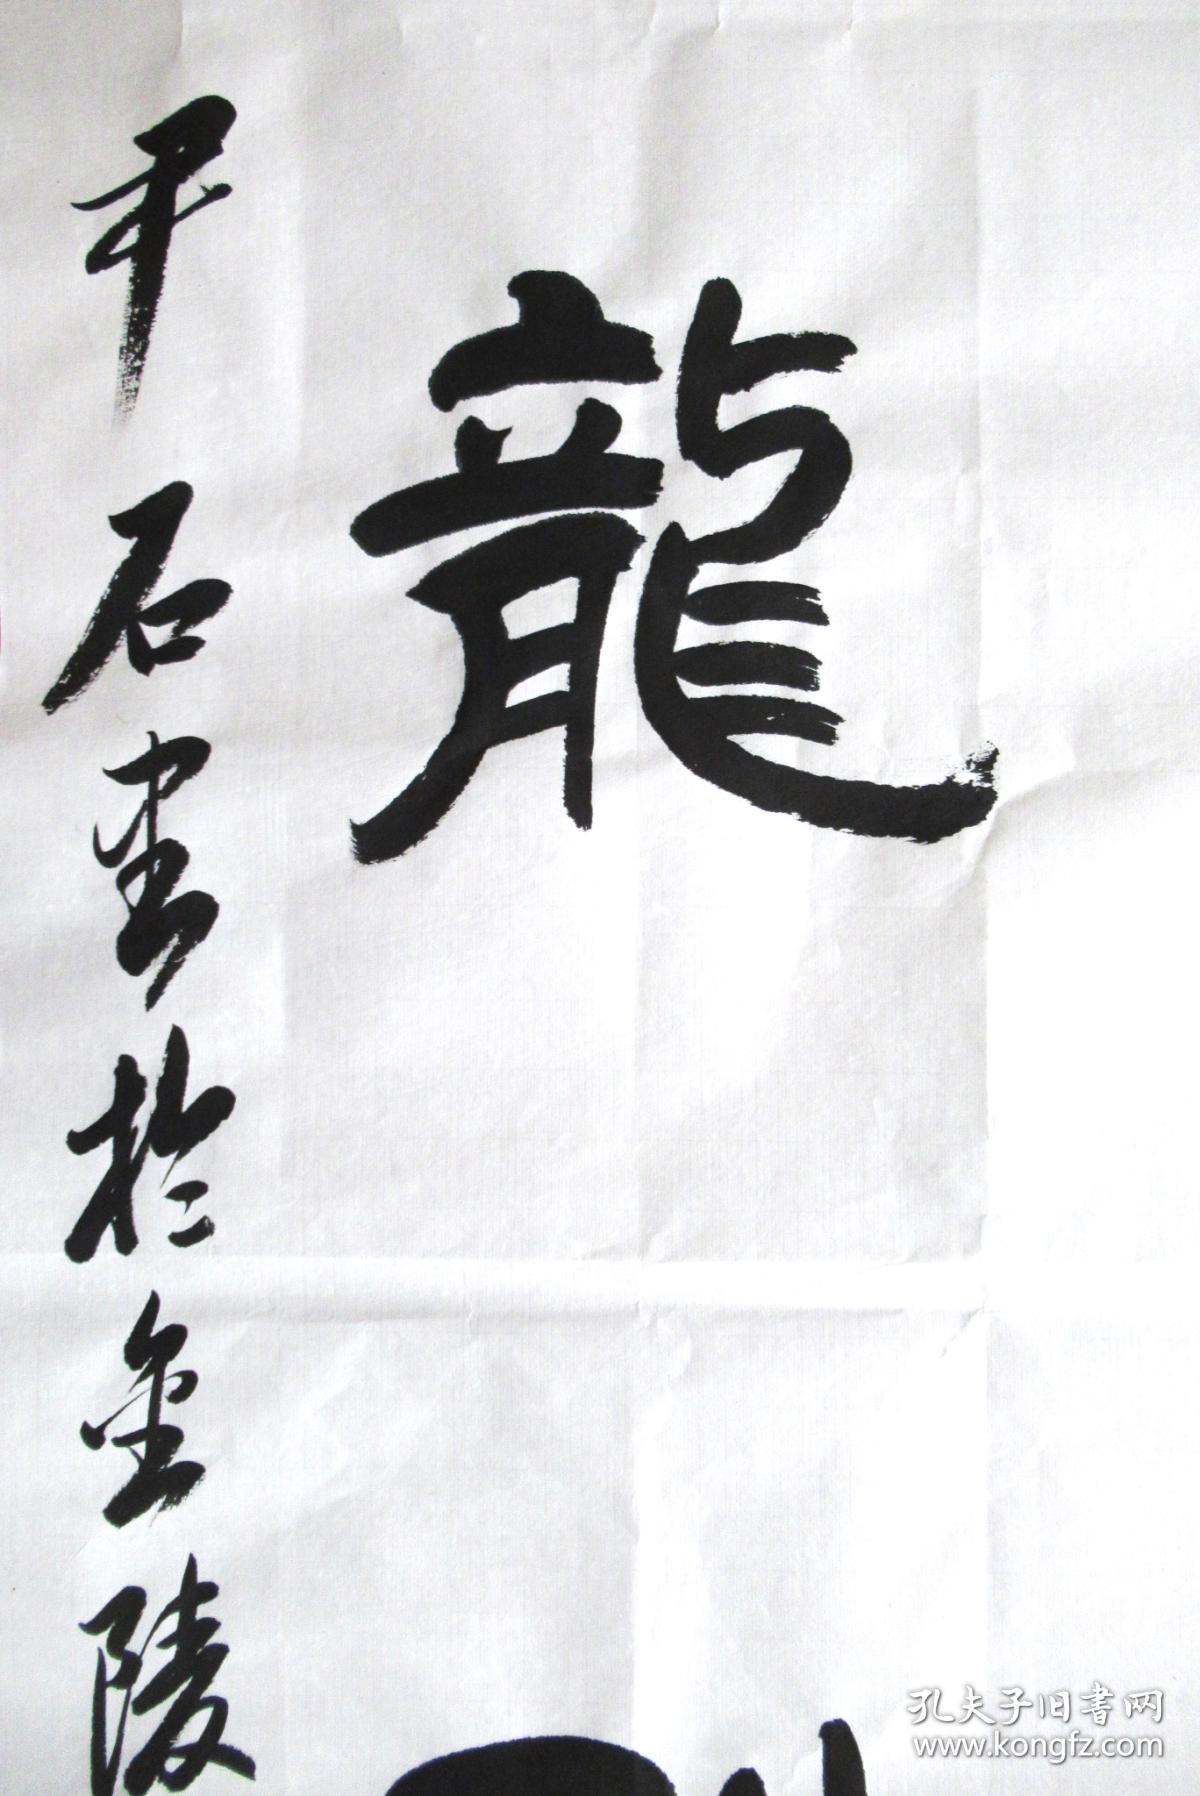 龍
平石書於金陵
孔夫子旧書网
www.kongfz.com